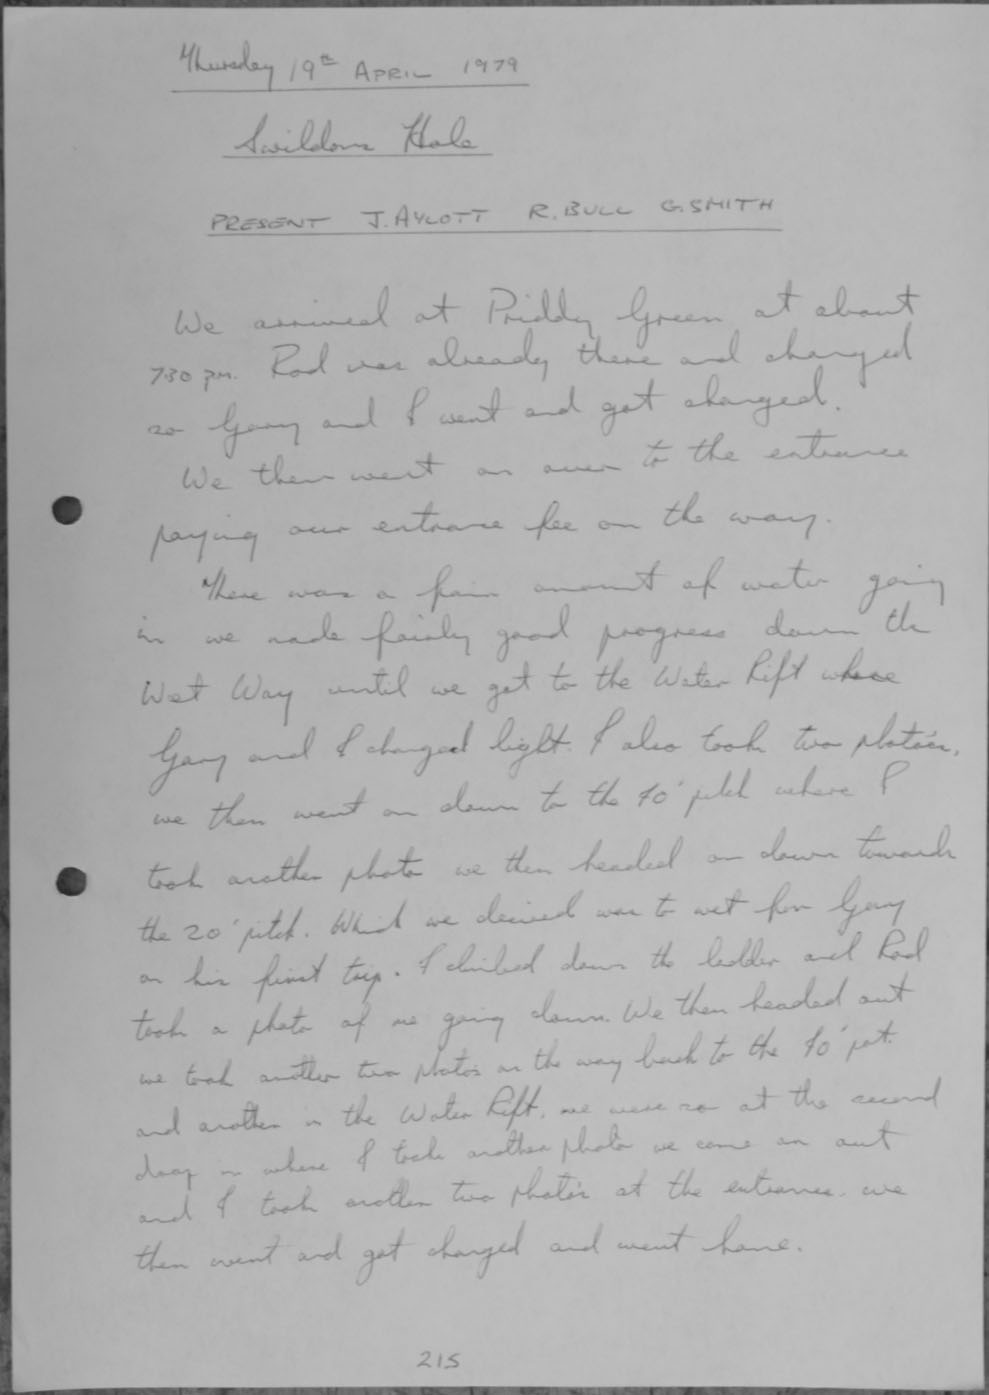 Thursday 19th APRIL 1979
Swildons Hole
PRESENT J. AYLOTT R. BULL G. SMITH
We arrived at Priddy Green at about
7.30 pm. Rod was already there and changed
so Gary and I went and got changed.
We then went on over to the entrance
paying our entrance fee on the way.
There was a fair amount of water going
in we made fairly good progress down the
Wet Way until we got to the Water Rift where
Gary and I changed light. I also took two photo's,
we then went on down to the 40' pitch where I
took another photo we then headed on down towards
the 20' pitch. Which we decided was to wet for Gary
on his first trip. I climbed down the ladder and Rod
took a photo of me going down. We then headed out
we took another two photos on the way back to the 40' pot.
and another in the Water Rift. we were so at the second
in where I took another photo we came on out
and I took another two photo's at the entrance. we
then went and got changed and went home.
215